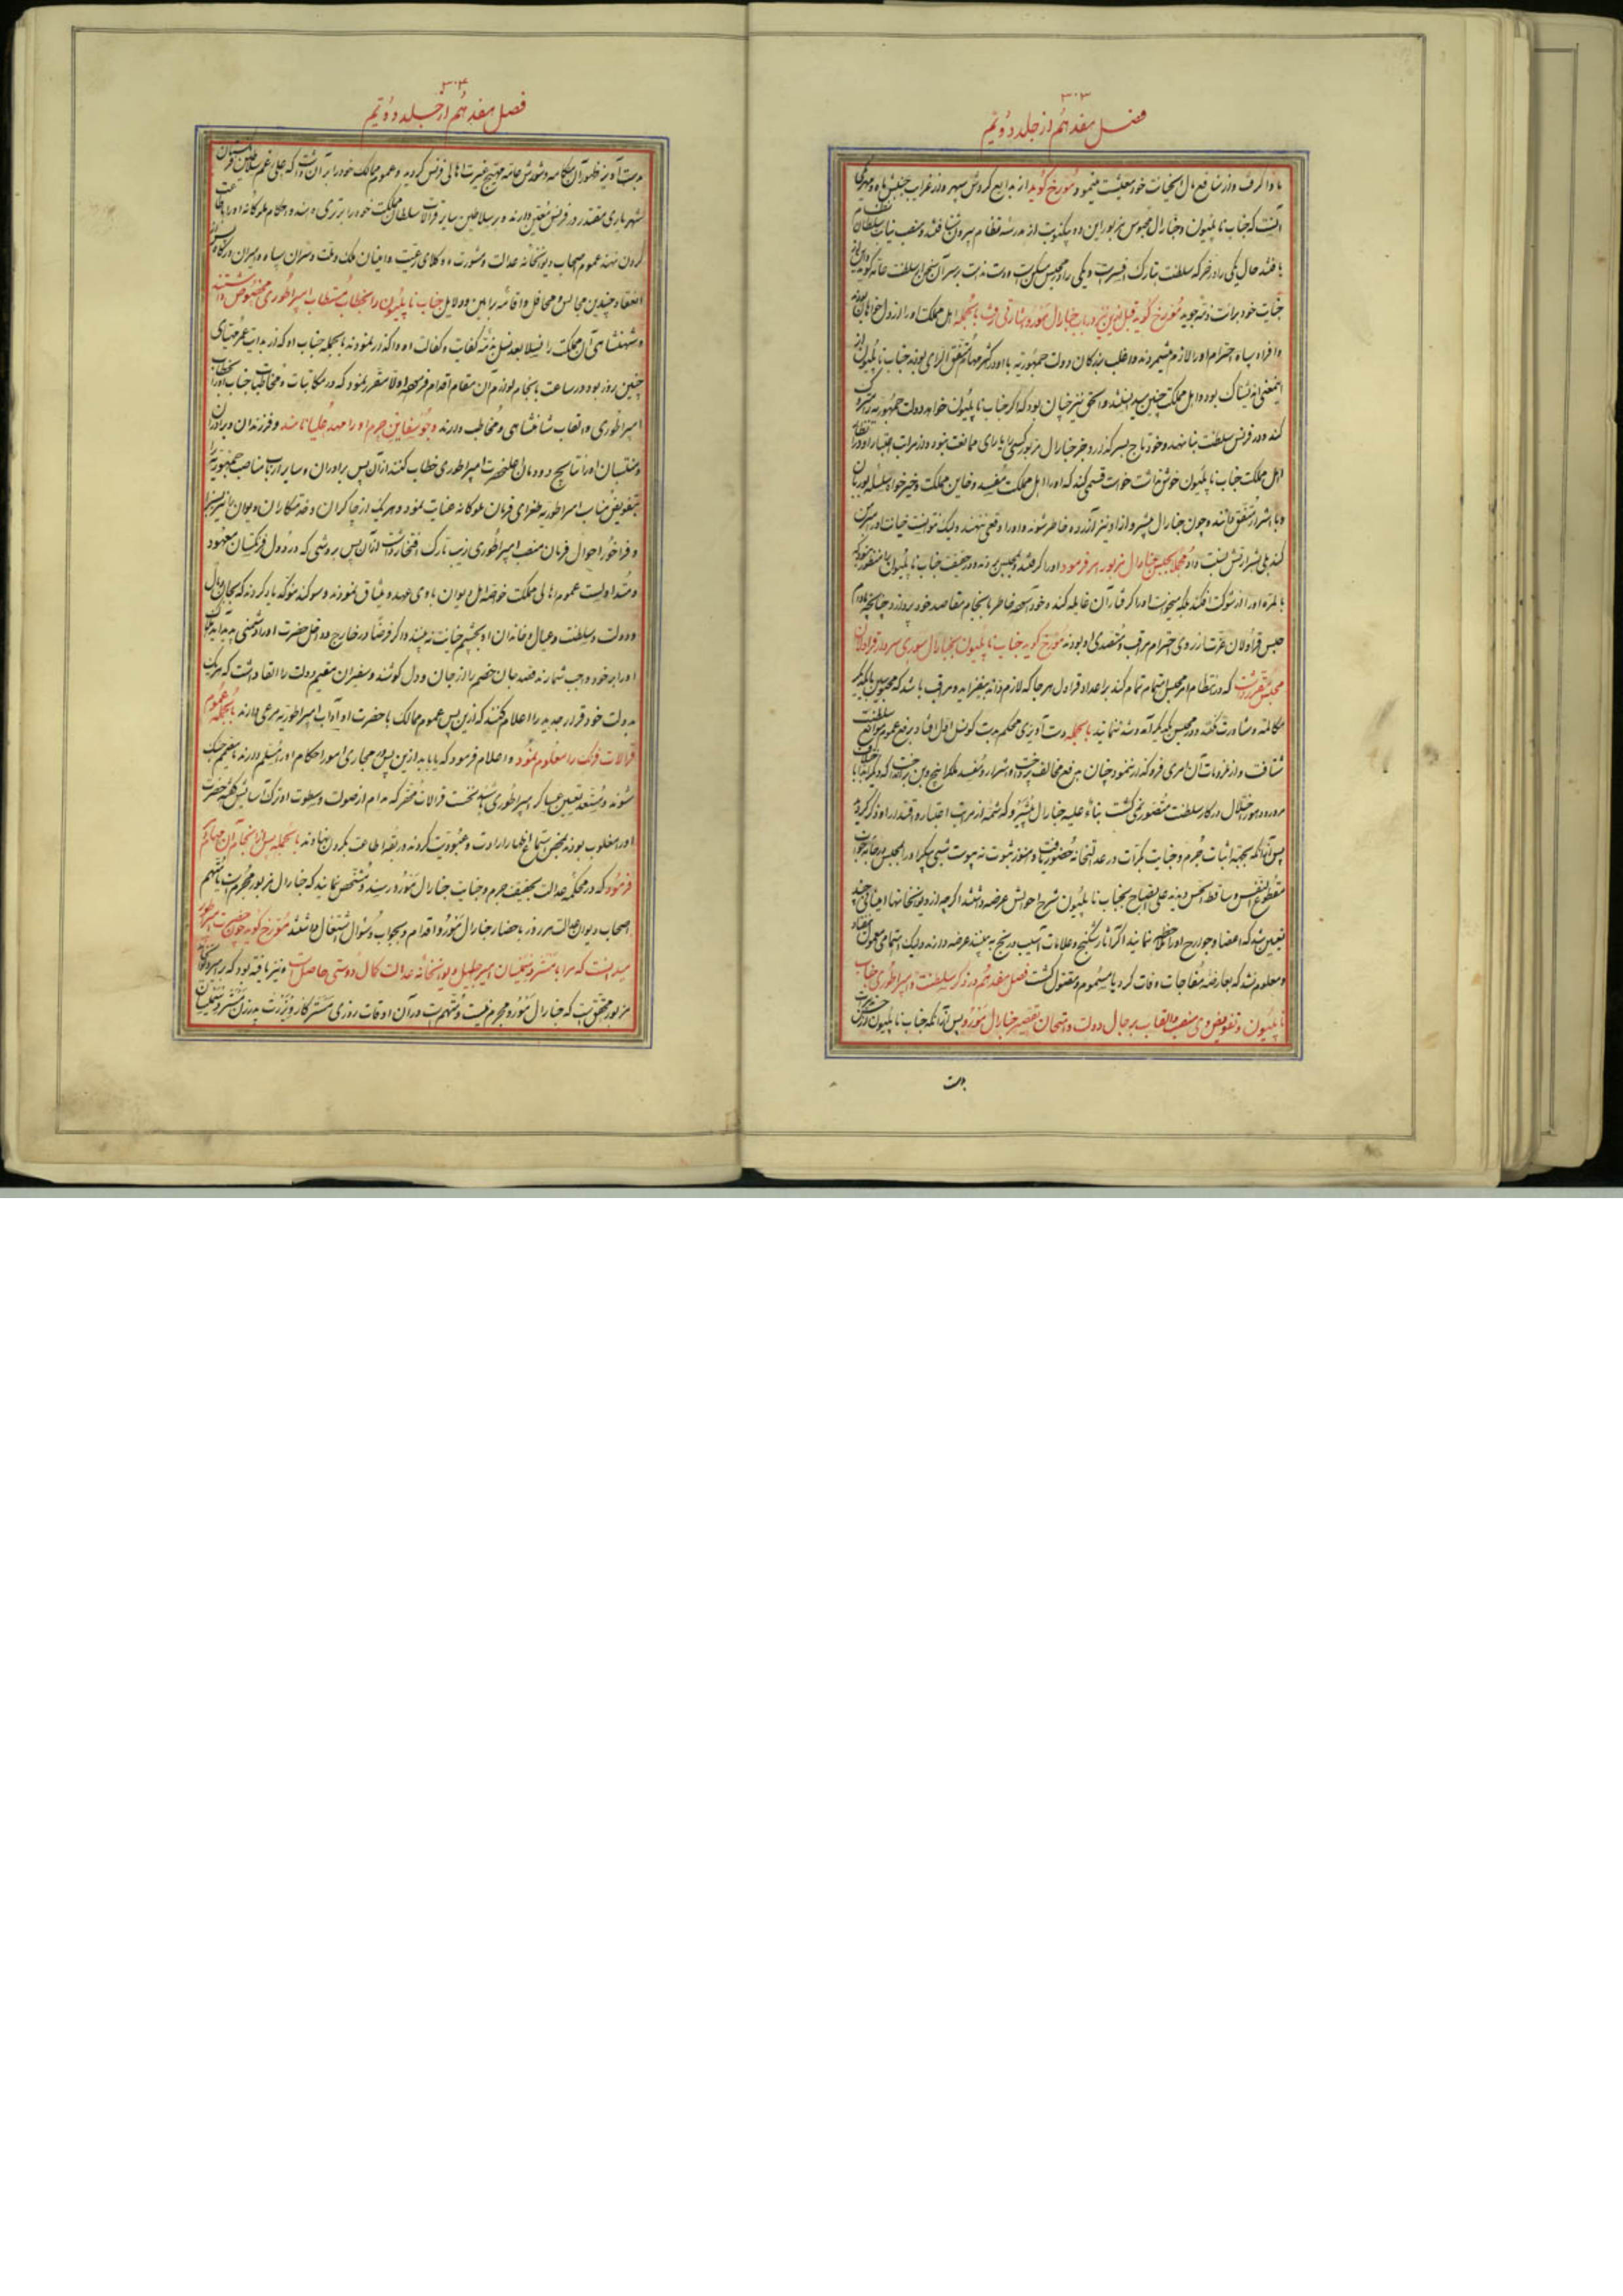 ۳۰۳
فصل هفدهم از جلد دویم
باز گرفت و از منافع مال و نتیجات خود معیشت مینمود مورخ گوید از بدایع گردش سپهر و از غرایب جنبش ماه و مهر یکی
آنست که جناب ناپلیون و جنارال محبوس مزبور این دو یکنوبت از مدرسه نظام بیرون شتافتند و منصب نیابت سلطان
یافتند حال یکی را در خور که سلطنت بتارک افسر است و یکی را در محبس مسکن است و دست ندامت بر سر آن سنجرا سلطنت خانه گوید این از
جنایت خود برائت ذمه جوید مورخ گوید قبل ازین نیز در باب جنارال مزبور اشارتی رفت بالجمله اهل مملکت او را از دل خواهان بودند
و افراد سپاه احترام او را لازم میشمردند و اغلب بندگان دولت جمهوریه با او در اکثر مهام متفق الرای بودند جناب ناپلیون از
اینمعنی اندیشناک بوده اهل مملکت چنین میدانستند و الحق نیز چنان بود که اگر جناب ناپلیون خواهد دولت جمهوریه را متروک
کند و در فرنس سلطنت بنا نهد و خود تاج بسر گذارد جز جنارال مزبور کسی را یارای ممانعت نبود و از مراتب اعتبار او در انظار
اهل مملکت جناب ناپلیون خوش نداشت خواست قسمی کند که او را اهل مملکت مفسد و خاین مملکت و خیر خواه سلسله بوربان
و با اشرار متفق دانند و چون جنارال مشیرو از او نیز آزرده خاطر شوند و او را وقعی ننهند ولیک نتوانست خیانت او را مبرهن
کند بلی بشرارتش نسبت داد مجملا بحبس جنارال مزبور امر فرمود او را گرفتند و بمحبس بردند و در حقیقت جناب ناپلیون را منظور نبود که
بالمره او را از شوکت افکند بلکه میخواست او را گرفتار آن غایله کند و خود آسوده خاطر بانجام مقاصد خود پردازد چنانچه مادام
حبس قراولان عزت از روی احترام مراقب و متصدی او بودند مورخ گوید جناب ناپلیون بجنارال سوری سردار قراولان
محبس مقرر داشت که در انتظام امر محبس اهتمام تمام کند بر اعداد قراول هر جا که لازم داند بیفزاید و مراقب باشد که محبوسین با یکدیگر
مکالمه و مشاورت نکنند و در محبس بیکدیگر آمد و شد ننمایند بالجمله دست آویزی محکم بدست کونسل اول افتاد بر رفع عموم موانع سلطنت
شتافت و از ملزومات آن امری فرو گذار ننمود چنان بدفع مخالف پرداخت و اشرار و مفسد ملک را بیخ و بن برانداخت که دیگر ابدا با خلاف
مرور دهور اختلال در کار سلطنت متصور نمی گشت بناء علیه جنارال مشیرو که شمه از مراتب اعتبار و اقتدار او ذکر گردید
پس از آنکه بجهة اثبات جرم و جنایت بکرات در عدالتخانه حضور یافت و هنوز بثبوت نه پیوست شبی پیکر او را در محبس بر جامه خواب
مقطوع النفس و ساقط الحس دیدند علی الصباح بجناب ناپلیون شرح احوالش عرضه داشتند اگر چه از دیوانخانها امینانی چند
تعیین شد که اعضا و جوارح او را ملاحظه نمایند اگر آثار شکنج و علامات آسیب و رنج به بینند عرضه دارند ولیک اهتمامی معمول نیفتاد
و معلوم نشد که بعارضه مفاجات وفات کرد یا مسموم و مقتول گشت فصل هفدهم در ذکر سلطنت و امپراطوری جناب
ناپلیون و تفویض وی منصب و القاب بر رجال دولت و امتحان تقصیر جنارال مورو پس از آنکه جناب ناپلیون را از حشرات
بدست
۳۰۴
فصل هفدهم از جلد دویم
بدست آویز ظهور آن هنگامه و شورش عامه مهیج غیرت اهالی فرنس گردید و عموم ممالک خود را بر آن داشت که علی رغم سلاطین فرنگستان
شهریاری مقتدر در فرنس متعین دارند و بر سلاطین سایر قرالات سلطان مملکت خود را برتری دهند و احکام ملوکانه او را باطاعت
گردن نهند عموم اصحاب دیوانخانه عدالت و مشورت و وکلای رعیت و اعیان ملک و ملت و سران سپاه و امیران درگاه پس از
انعقاد چندین مجالس و محافل و اقامه براهین و دلایل جناب ناپلیون را بخطاب مستطاب امپراطوری مخصوص داشتند
و شهنشاهی آن مملکت را نسلا بعد نسل بذمه کفایت و کفالت او واگذار نمودند بالجمله جناب او که از بدایت عمر مهیای
چنین روز بود در ساعت بانجام لوازم آن مقام اقدام فرموده اولا مقرر نمود که در مکاتبات و مخاطبات جناب او را بخطاب
امپراطوری و القاب شاهنشاهی مخاطب دارند و جوسفاین حرم او را مهد علیا نامند و فرزندان و برادران
و منتسبان او را نتایج دودمان اعلیحضرت امپراطوری خطاب کنند از آن پس برادران و سایر ارباب مناصب جمهوریه را
بتفویض مناصب امپراطوریه طغرای فرمان ملوکانه عنایت نمود و هر یک از چاکران و خدمتکاران دیوان را نیز بسزا
و فراخور احوال فرمان منصب امپراطوری زینت تارک افتخار داشت از آن پس بروشی که در دول فرنگستان معهود
و متداول است عموم اهالی مملکت خاصه اهل دیوان با وی عهد و میثاق نمودند و سوگند موکد یاد کردند که بجان و مال
و دولت و سلطنت و عیال و خاندان او بچشم خیانت نه بینند و اگر فرضا در خارج و داخل حضرت او را دشمنی پدید آید دفع
او را بر خود واجب شمارند قصد جان خصم را از جان و دل کوشند و سفیران مقیم دولت را القا داشت که هر یک
بدولت خود قرار جدید را اعلام کنند که ازین پس عموم ممالک با حضرت او آداب امپراطوریه مرعی دارند بالجمله عموم
قرالات فرنک را معلوم نمود و اعلام فرمود که یا باید ازین پس در مجاری امور احکام او را مسلم دارند یا مقیم جنگ
شوند و مستعد تعیین عساکر امپراطوری باشند نخست قرالات محقر که مدام از صولت و سطوت او ترک آسایش گفته حضرت
او را مغلوب بودند بمحض استماع اظهار ارادت و عبودیت کردند و ربقه اطاعت بگردن نهادند بالجمله پس از انجام آن مهام
فرمود که در محکمه عدالت بحقیقت جرم و جنایت جنارال مورو رسند و مشخص نمایند که جنارال مزبور مجرم است یا متهم
اصحاب دیوان عدالت هر روز باحضار جنارال مورو اقدام و بجواب و سوال اشتغال داشتند مورخ گوید چون حضرت امپراطور
میدانست که مرا با